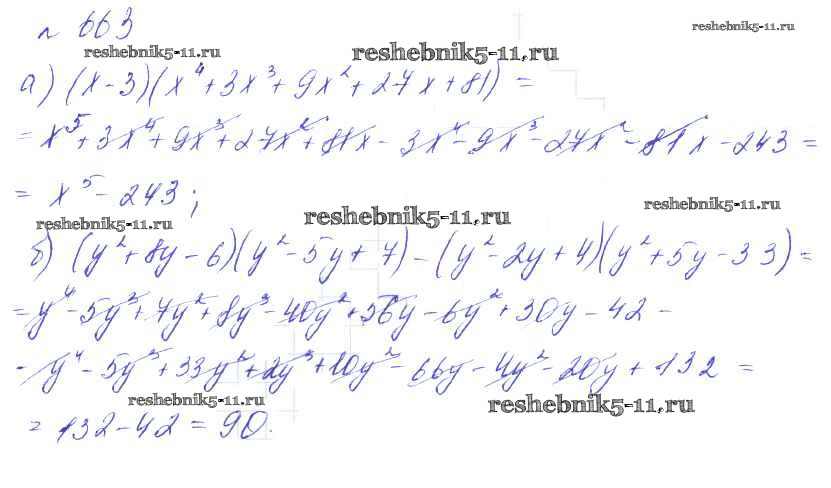 № 663
reshebnik5-11.ru
reshebnik5-11.ru
reshebnik5-11.ru
а) (x-3)(x⁴+3x³+9x²+27x+81) =
= x⁵+3x⁴+9x³+27x²+81x-3x⁴-9x³-27x²-81x-243 =
= x⁵-243;
reshebnik5-11.ru
reshebnik5-11.ru
reshebnik5-11.ru
б) (y²+8y-6)(y²-5y+7)-(y²-2y+4)(y²+5y-33) =
= y⁴-5y³+7y²+8y³-40y²+56y-6y²+30y-42-
-y⁴-5y³+33y²+2y³+10y²-66y-4y²-20y+132 =
reshebnik5-11.ru
reshebnik5-11.ru
= 132-42 = 90.